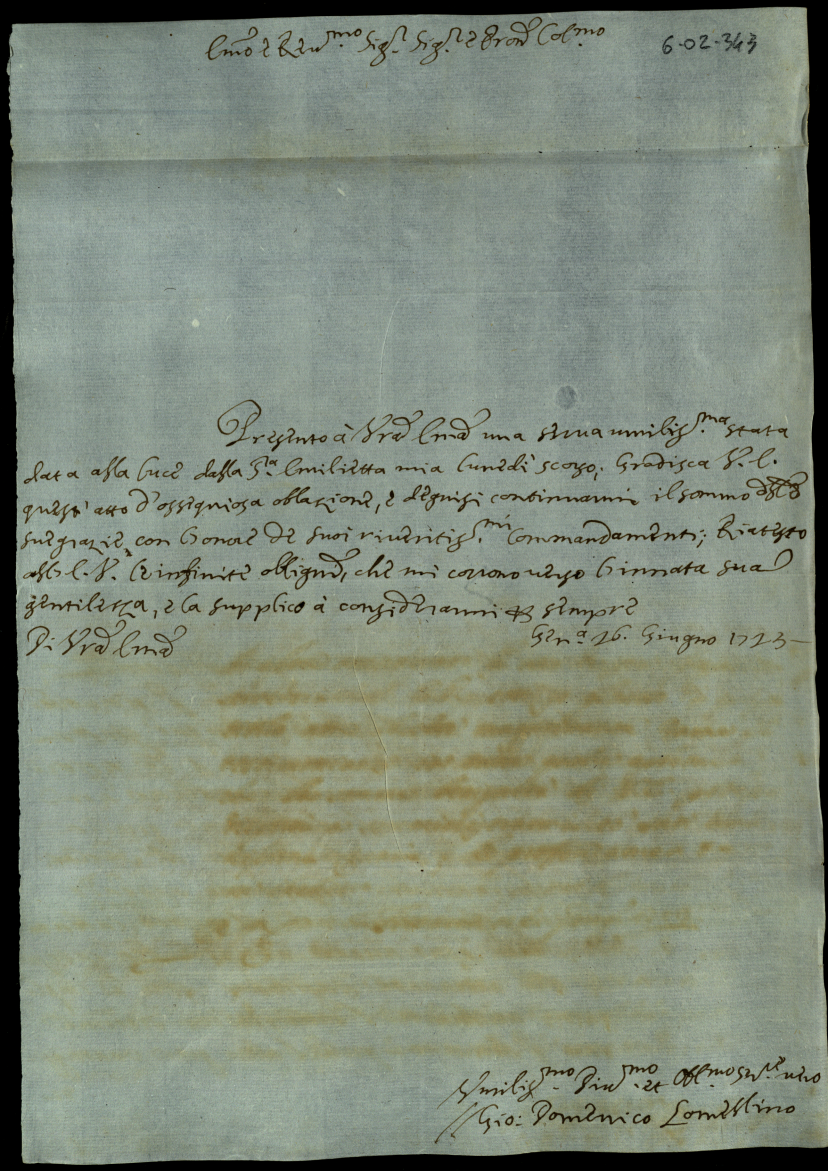 Em̃o e Reu.mo Sig.r Sig.r e Pron̄ Col.mo
6-02-343
Presento à Vrã Em̃a una serua umilis.ma stata
data alla luce dalla S.ra Emilietta mia lunedì scorso; Gradisca V. E.
quest' atto d'ossequiosa oblazione, e degnisi continuarmi il sommo delle
sue grazie con l'onore de suoi riueritis.mi Commandamenti; Riattesto
all' E. V. le infinite obligaz̃, che mi corrono uerso l'innata sua
gentilezza, e la supplico à considerarmi p sempre
Di Vrã Em̃a
Gen.a 26. Giugno 1723
Vmilis.mo Diu.mo et Obl.mo Ser.re uero
Gio: Domenico Lomellino